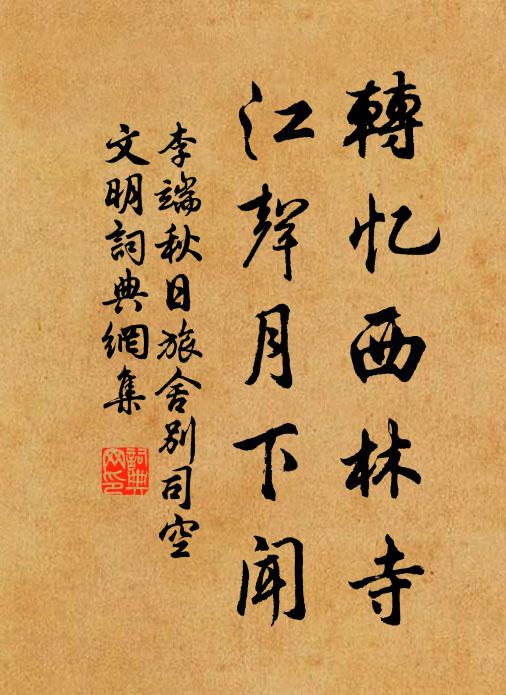 轉忆西林寺
江聲月下聞
李端秋日旅舍別司空
文明詞典網集
詞典
网印